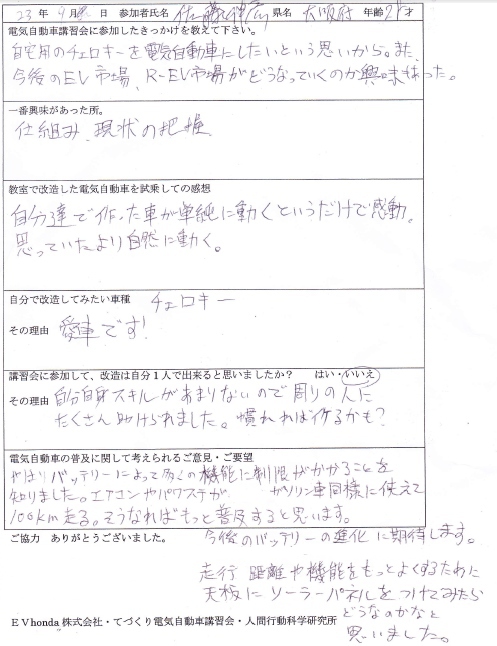 23 年 9月 日 参加者氏名 佐藤 県名 大阪府 年齢 才
電気自動車講習会に参加したきっかけを教えて下さい。
自宅用のチェロキーを電気自動車にしたいという思いから。また、
今後のEV市場、R-EV市場がどうなっていくのか興味もあった。
一番興味があった所。
仕組み、現状の把握
教室で改造した電気自動車を試乗しての感想
自分達で作った車が単純に動くというだけで感動。
思っていたより自然に動く。
自分で改造してみたい車種 チェロキー
その理由 愛車です!
講習会に参加して、改造は自分1人で出来ると思いましたか? はい・いいえ
その理由 自分自身スキルがあまりないので周りの人に
たくさん助けられました。慣れればイケるかも?
電気自動車の普及に関して考えられるご意見・ご要望
やはりバッテリーによって多くの機能に制限がかかることを
知りました。エアコンやパワステが ガソリン車同様に使えて
100km走る。そうなればもっと普及すると思います。
ご協力 ありがとうございました。 今後のバッテリーの進化に期待します。
走行距離や機能をもっとよくするために
天板にソーラーパネルをつけてみたら
どうなのかなと
EVhonda株式会社・てづくり電気自動車講習会・人間行動科学研究所
思いました。